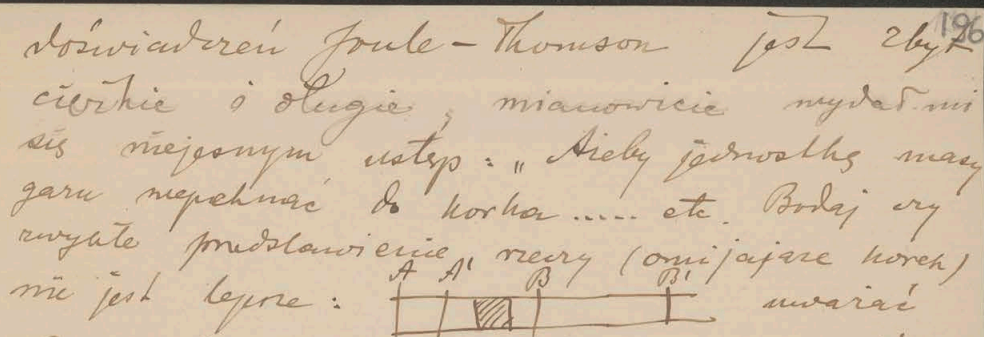 196
doświadczeń Joule-Thomson jest zbyt
ciężkie i długie, mianowicie wydał mi
się niejasnym ustęp: „Ażeby jednostkę masy
gazu wepchnąć do korka ..... etc. Bodaj czy
zwykłe przedstawienie rzeczy (omijające korek)
A A' B B'
nie jest lepsze: uważać